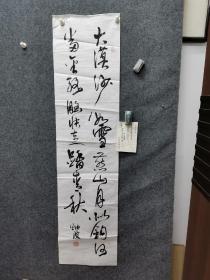 大漠沙如雪燕山月似钩何
当金络脑快走踏清秋